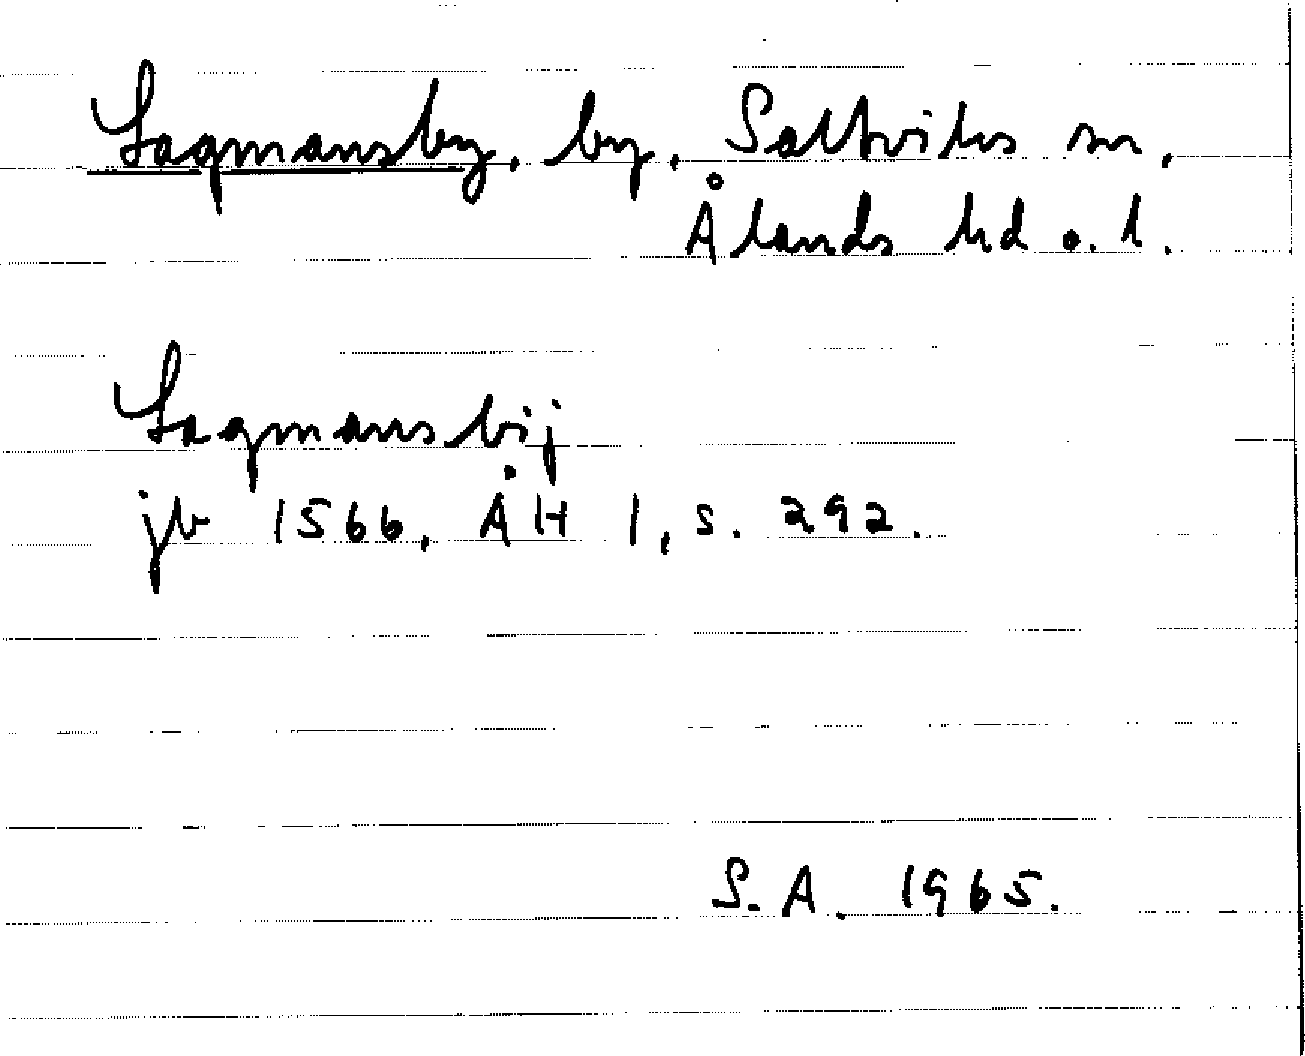 Lagmansby, by, Saltviks sn,
Ålands hd o. l.
Lagmans bij
jb 1566, ÅH 1, s. 292.
S. A. 1965.